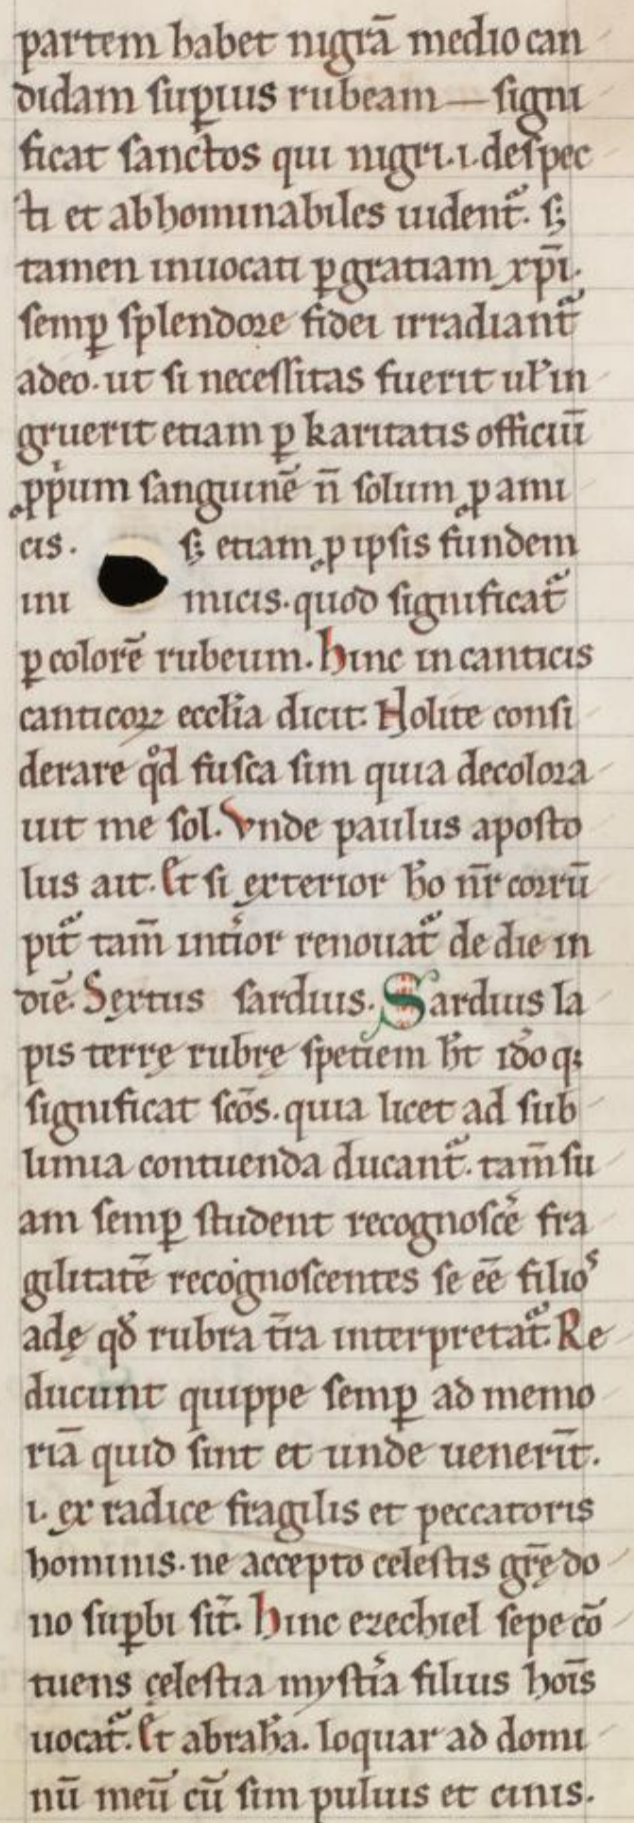 partem habet nigrā medio can
didam sup̲ius rubeam — signi
ficat sanctos qui nigri .i. despec
ti et abhominabiles uident᷑. s;
tamen inuocati p̲ gratiam xp̄i.
semp̲ splendore fidei irradiant᷑
adeo. ut si necessitas fuerit ul̓ in
gruerit etiam p̲ karitatis officiū
ꝓpͥum sanguinē n̄ solum ꝓ ami
cis. s; etiam ꝓ ipsis fundem
ini micis. quod significat᷑
p̲ colorē rubeum. Hinc in canticis
canticoꝝ eccl̄ia dicit. Nolite consi
derare qͦd fusca sim quia decolora
uit me sol. Vnde paulus aposto
lus ait. Et si exterior ho̅ nr̄ corrū
pit᷑ tam̄ intͥior renouat᷑ de die in
diē. Sextus sardius. Sardius la
pis terrę rubrę spetiem h̄t idͦo q;
significat sc̄os. quia licet ad sub
limia contuenda ducant᷑. tam̄ su
am semp̲ student recognosce᷑ fra
gilitatē recognoscentes se ēē filioˢ
adę qd̄ rubra t̄ra interpretat᷑. Re
ducunt quippe semp̲ ad memo
riā quid sint et unde uenerīt.
.i. ex radice fragilis et peccatoris
hominis. ne accepto celestis gr̄ę do
no sup̲bi sīt. Hinc ezechiel sepe cō
tuens cęlestia mystͥia filius hoīs
uocat᷑. Et abrah̄a. loquar ad domi
nū meū cū sim puluis et cinis.